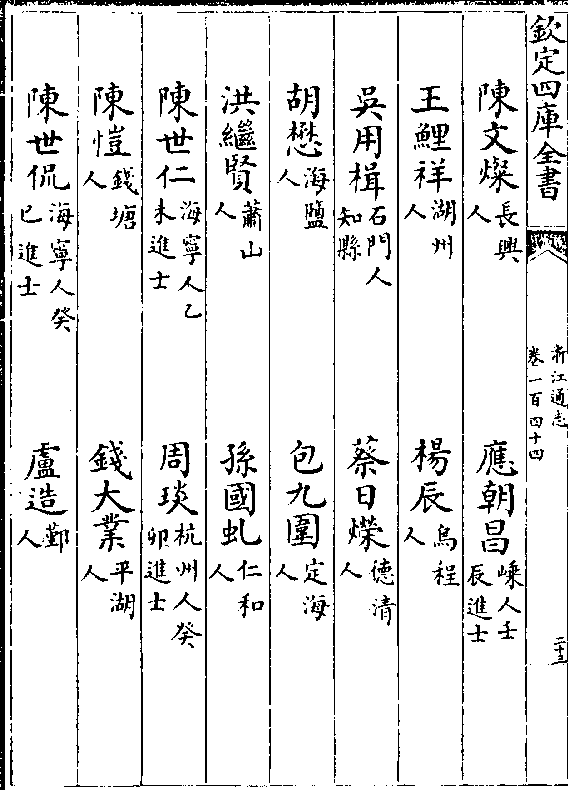 欽定四庫全書
浙江通志
卷一百四十四
二十三
陳文燦長興人
應朝昌嵊人壬辰進士
王鯉祥湖州人
楊辰烏程人
吳用楫石門人知縣
蔡日爃德清人
胡懋海鹽人
包九圍定海人
洪繼賢蕭山人
孫國虬仁和人
陳世仁海寧人乙未進士
周琰杭州人癸卯進士
陳愷錢塘人
錢大業平湖人
陳世侃海寧人癸巳進士
盧造鄞人